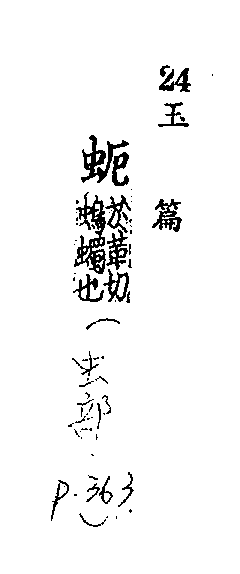 24
玉篇
蚅
於革切
蝎蠋也
(虫部.
p.363)